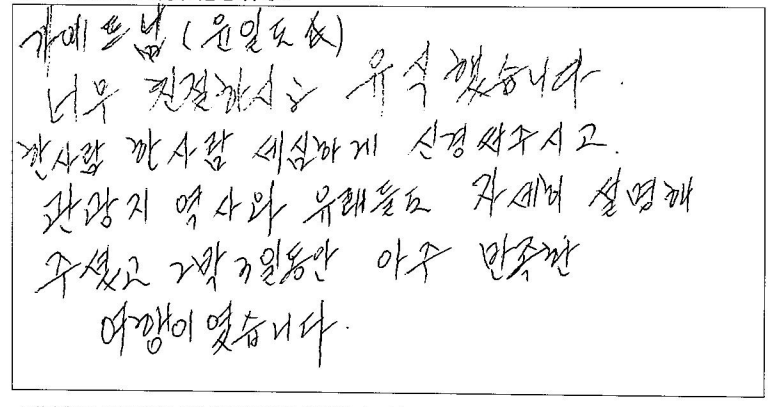 가이드님 (윤일도氏)
너무 친절하시고 유식했습니다.
한사람 한사람 세심하게 신경써주시고.
관광지 역사와 유래들도 자세히 설명해
주셨고 2박3일동안 아주 만족한
여행이였습니다.